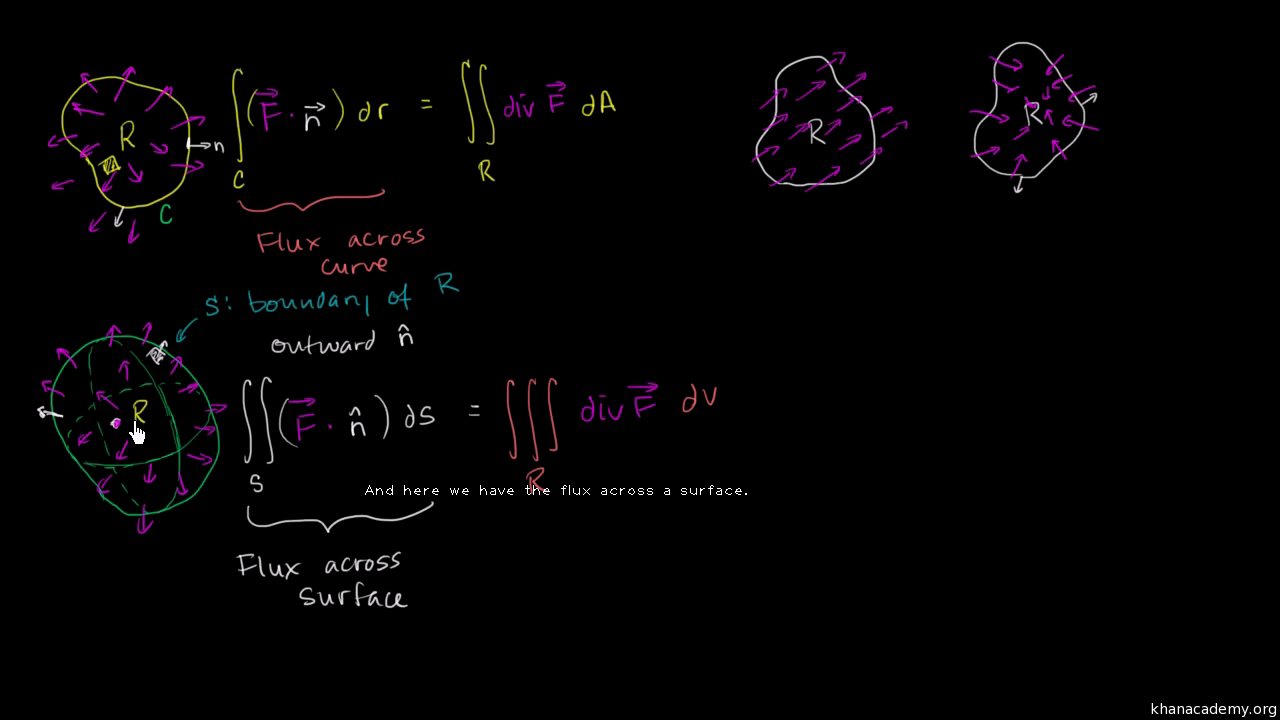 R
n
C
∫ (F⃗ · n⃗) dr = ∬ div F⃗ dA
C
R
Flux across
curve
R
R
S: boundary of R
outward n̂
R
∬ (F⃗ · n̂) dS = ∭ div F⃗ dV
S
R
And here we have the flux across a surface.
Flux across
surface
khanacademy.org